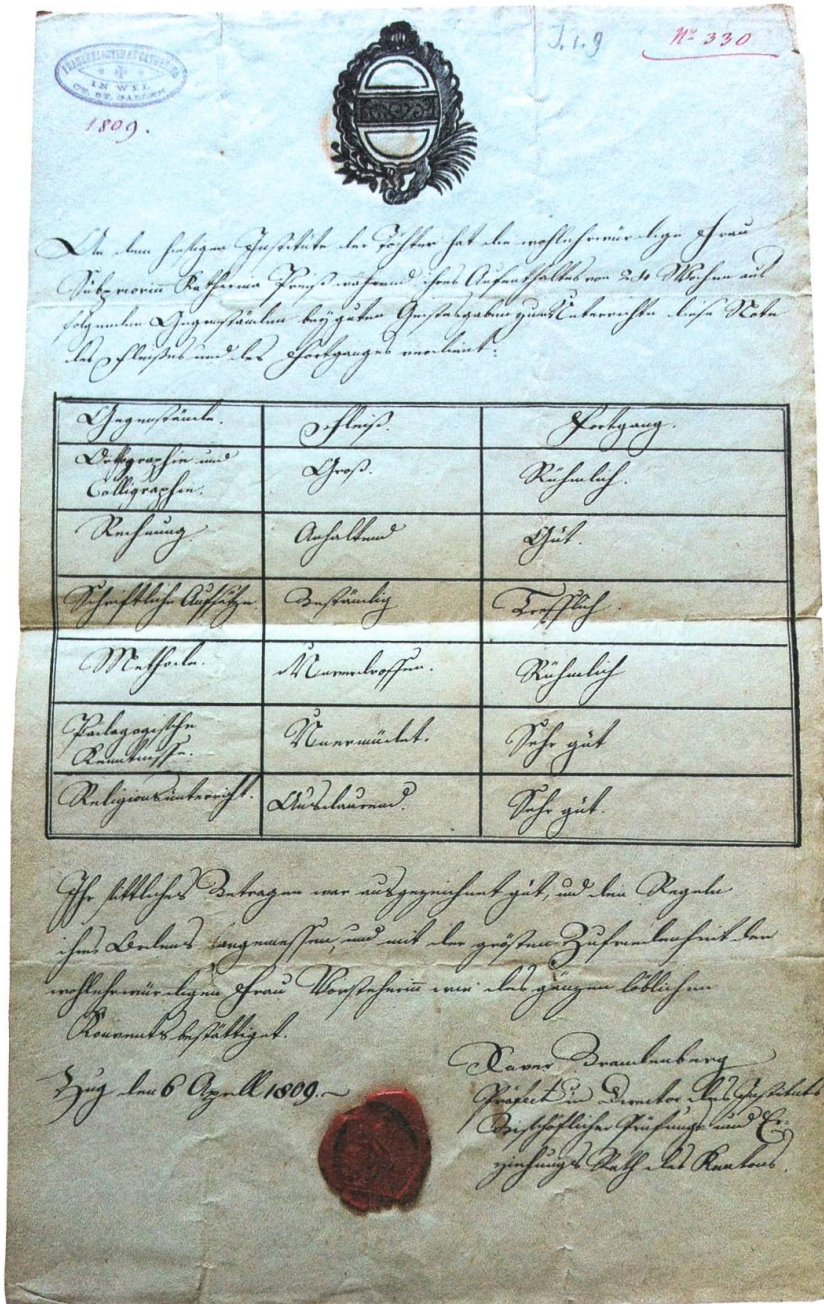 FRAUENKLOSTER ST. CATHARINA
IN WYL
CT. ST. GALLEN
1809.
J. 1. 9
No 330
An dem hiesigen Institute der Töchter hat die wohlehrwürdige Frau
Subpriorin Katharina während ihres Aufenthaltes von 24 Wochen aus
folgenden Gegenständen bey guten Geistesgaben zum Unterrichte diese Note
des Fleißes und des Fortganges verdient:
Gegenstände. Fleiß. Fortgang.
Orthographie und
Calligraphie. Groß. Rühmlich.
Rechnung Anhaltend Gut.
Schriftliche Aufsätze. Beständig Trefflich.
Methode. Unverdrossen. Rühmlich
Pädagogische
Kenntnisse. Unermüdet. Sehr gut
Religionsunterricht. Ausdaurend. Sehr gut.
Ihr sittliches Betragen war ausgezeichnet gut, und den Regeln
ihres Ordens angemessen, und mit der grösten Zufriedenheit der
wohlehrwürdigen Frau Vorsteherin wie des ganzen löblichen
Konvents bestättiget.
Zug den 6 Aprill 1809.
Xaver Brandenberg
Präfect u. Director des Instituts
Bischöflicher Prüfungs- und Er-
ziehungs Rath des Kantons.